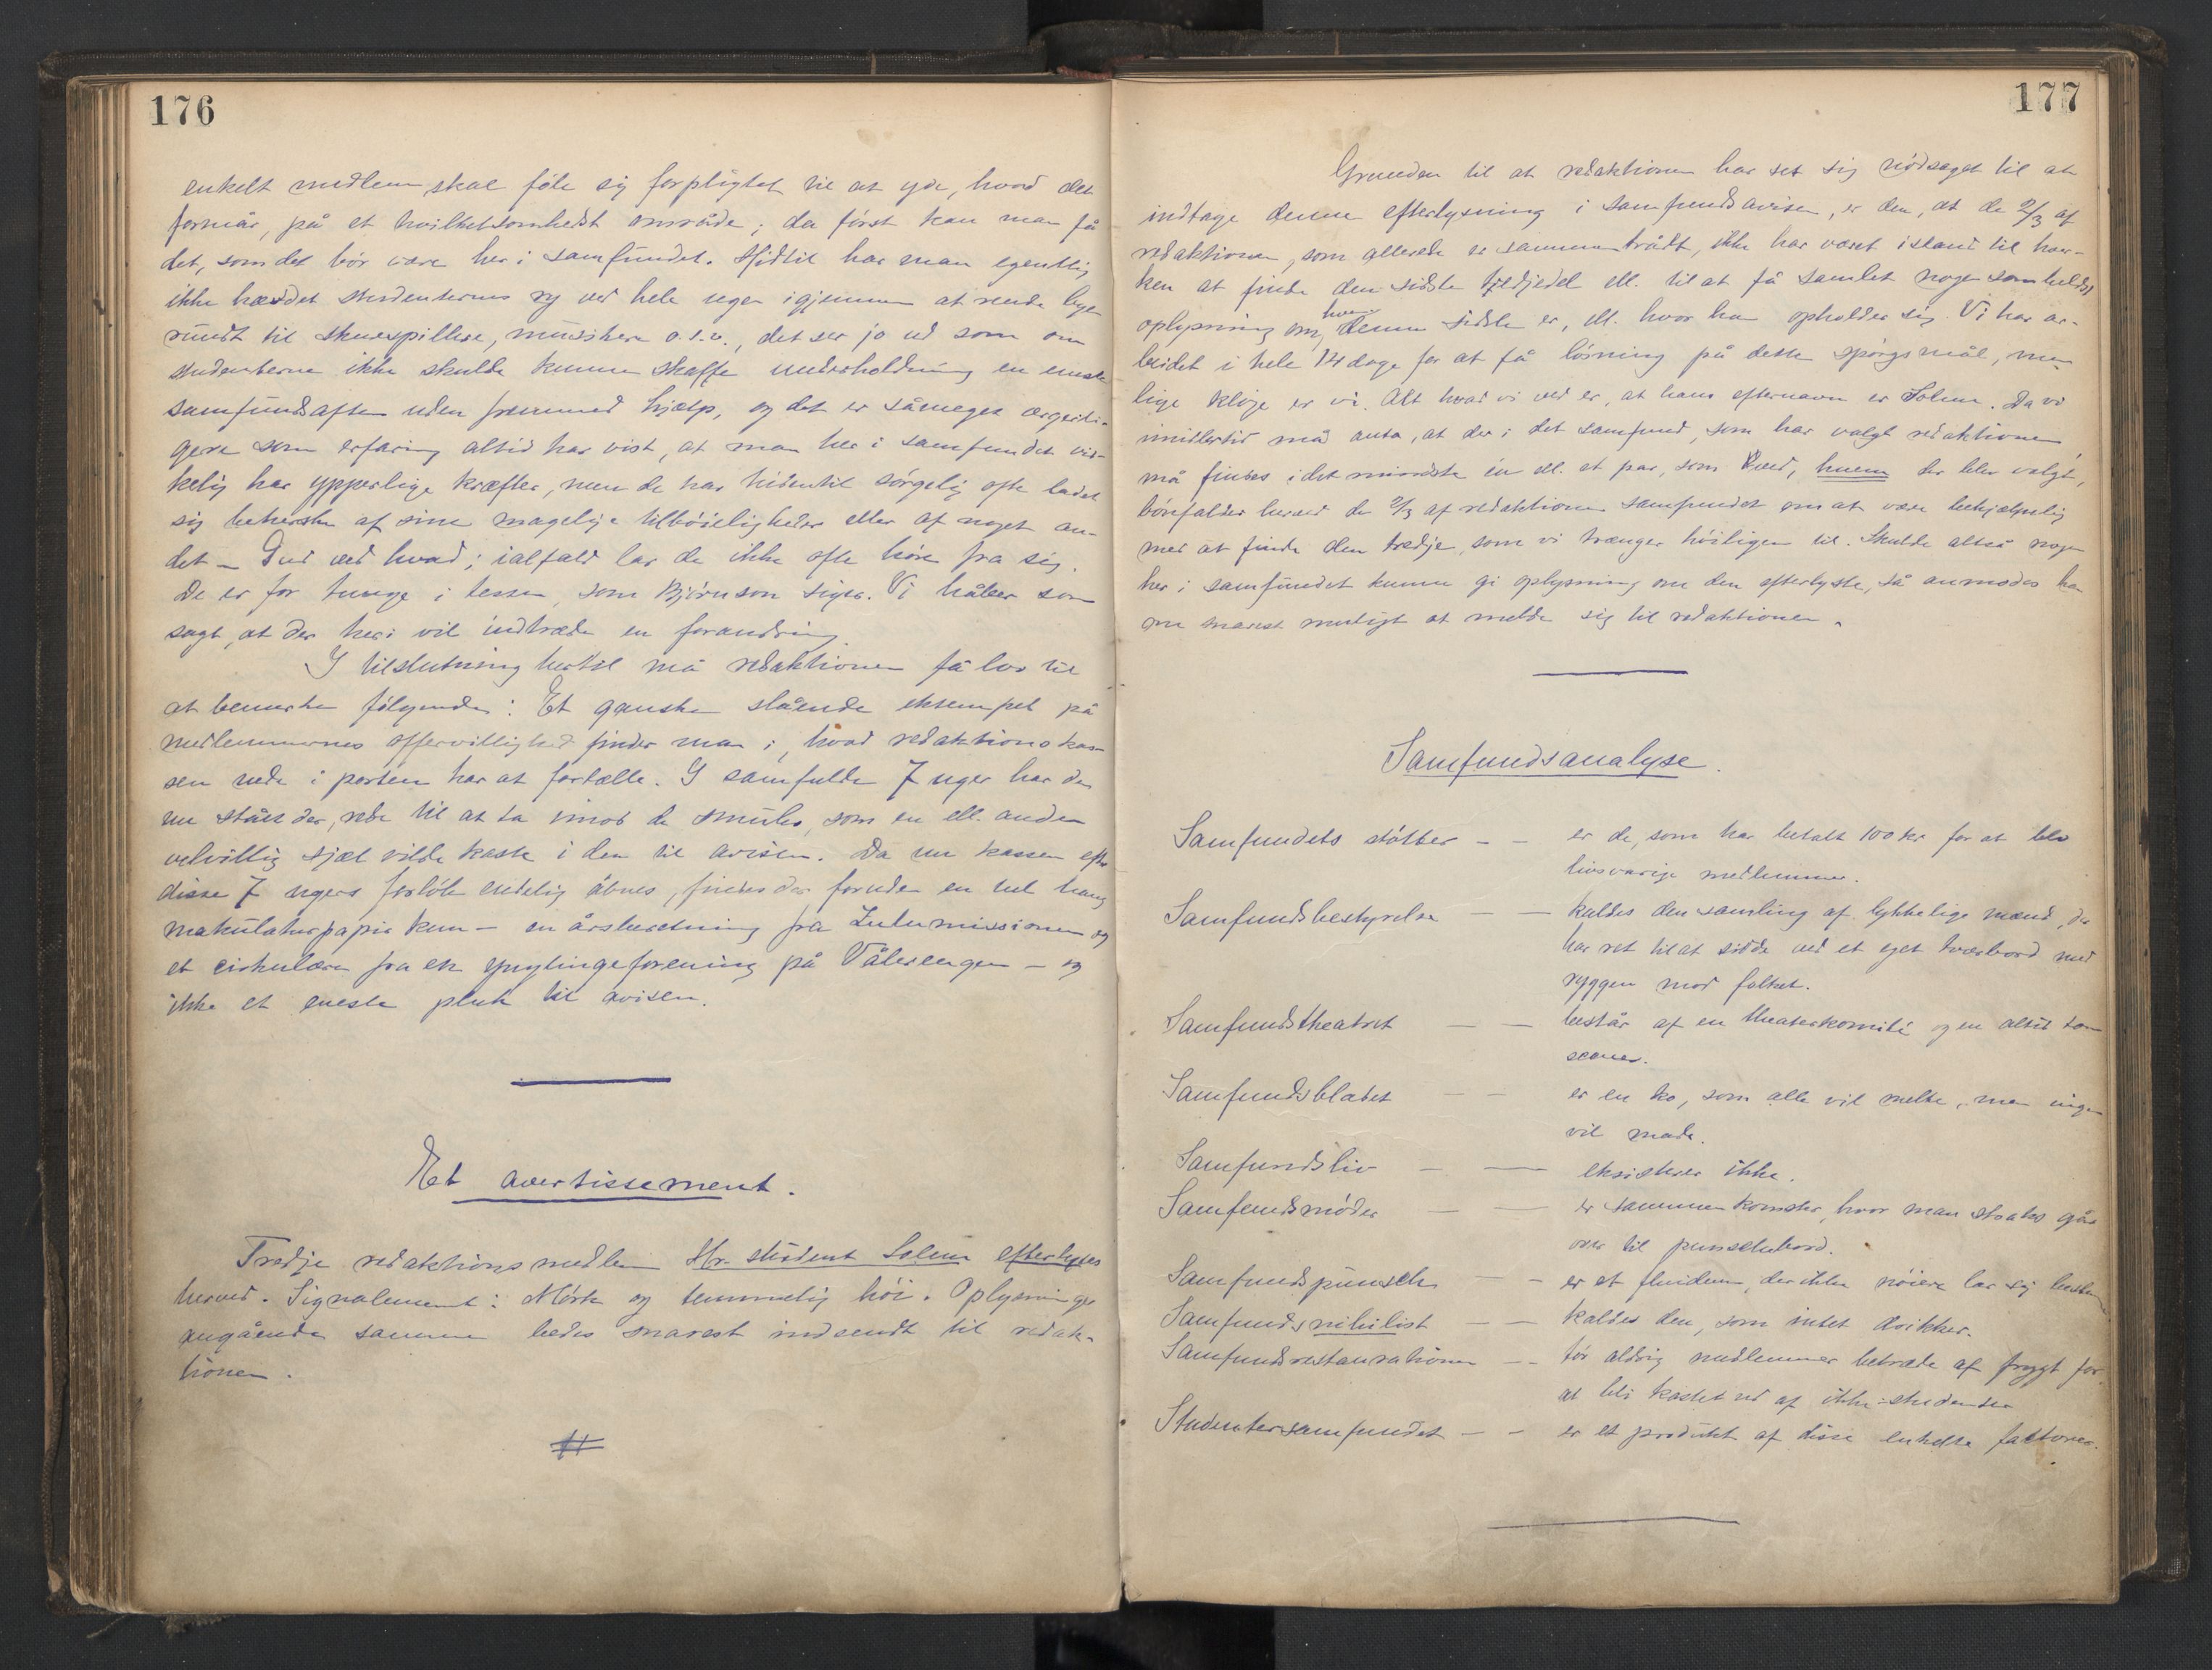 176
enkelt medlem skal føle sig forpligtet til at yde, hvad det
formår, på et hvilketsomhelst område; da først kan man få
det, som det bør være her i samfundet. Hidtil har man egentlig
ikke hævdet studenternes ry ved hele uger igjennem at rende byen
rundt til skuespillere, musikere o.s.v., det ser jo ud som om
studenterne ikke skulde kunne skaffe underholdning en eneste
samfundsaften uden fremmed hjælp, og det er såmeget ærgerli-
gere som erfaring altid har vist, at man her i samfundet vir-
kelig har ypperlige kræfter, men de har hidentil sørgelig ofte ladet
sig beherske af sine magelige tilbøieligheder eller af noget an-
det – Gud ved hvad; ialfald lar de ikke ofte høre fra sig.
De er for tunge i lessen, som Bjørnson siger. Vi håber som
sagt, at der heri vil indtræde en forandring.
I tilslutning hertil må redaktionen få lov til
at bemerke følgende: Et ganske slående eksempel på
medlemmernes offervillighed finder man i, hvad redaktionskas-
sen nede i porten har at fortælle. I samfulde 7 uger har den
nu stået der, rede til at ta imod de smuler, som en ell. anden
velvillig sjæl vilde kaste i den til avisen. Da nu kassen efter
disse 7 ugers forløb endelig åbnes, findes der foruden en hel haug
makulaturpapir kun – en årsberetning fra Zulumissionen og
et cirkulære fra en ynglingeforening på Vålerengen – og
ikke et eneste pluk til avisen.
Et avertissement.
Tredje redaktionsmedlem Hr. student Solem efterlyses
herved. Signalement: Mørk og temmelig høi. Oplysninger
angående samme bedes snarest indsendt til redak-
tionen.
177
Grunden til at redaktionen har set sig nødsaget til at
indtage denne efterlysning i samfundsavisen, er den, at de 2/3 af
redaktionen, som allerede er sammentrådt, ikke har været istand til hver-
ken at finde den sidste tredjedel ell. til at få samlet nogen somhelst
oplysning om, hvem denne sidste er, ell. hvor han opholder sig. Vi har ar-
beidet i hele 14 dage for at få løsning på dette spørgsmål, men
lige kloge er vi. Alt hvad vi ved er, at hans efternavn er Solem. Da vi
imidlertid må anta, at der i det samfund, som har valgt redaktionen
må findes i det mindste én ell. et par, som ved, hvem der blev valgt,
bønfalder herved de 2/3 af redaktionen samfundet om at være behjælpelig
med at finde den tredje, som vi trænger høiligen til. Skulde altså nogen
her i samfundet kunne gi oplysning om den efterlyste, så anmodes han
om snarest muligt at melde sig til redaktionen.
Samfundsanalyse.
Samfundets støtter – – er de, som har betalt 100 kr for at bli
livsvarige medlemmer.
Samfundsbestyrelse – – kaldes den samling af lykkelige mænd, der
har ret til at sidde ved et eget tverbord med
ryggen mod folket.
Samfundstheatret – – består af en theaterkomité og en altid tom
scene.
Samfundsbladet – – er en ko, som alle vil melke, men ingen
vil made.
Samfundsliv – – eksisterer ikke.
Samfundsmøder – – er sammenkomster, hvor man straks går
over til punschebord.
Samfundspunsch – – er et fluidum, der ikke nøiere lar sig bestemme
Samfundsnihilist – – kaldes den, som intet drikker.
Samfundsrestaurationen – – tør aldrig medlemmer betræde af frygt for
at bli kastet ud af ikke-studenter
Studentersamfundet – – er et produkt af disse enkelte faktorer.